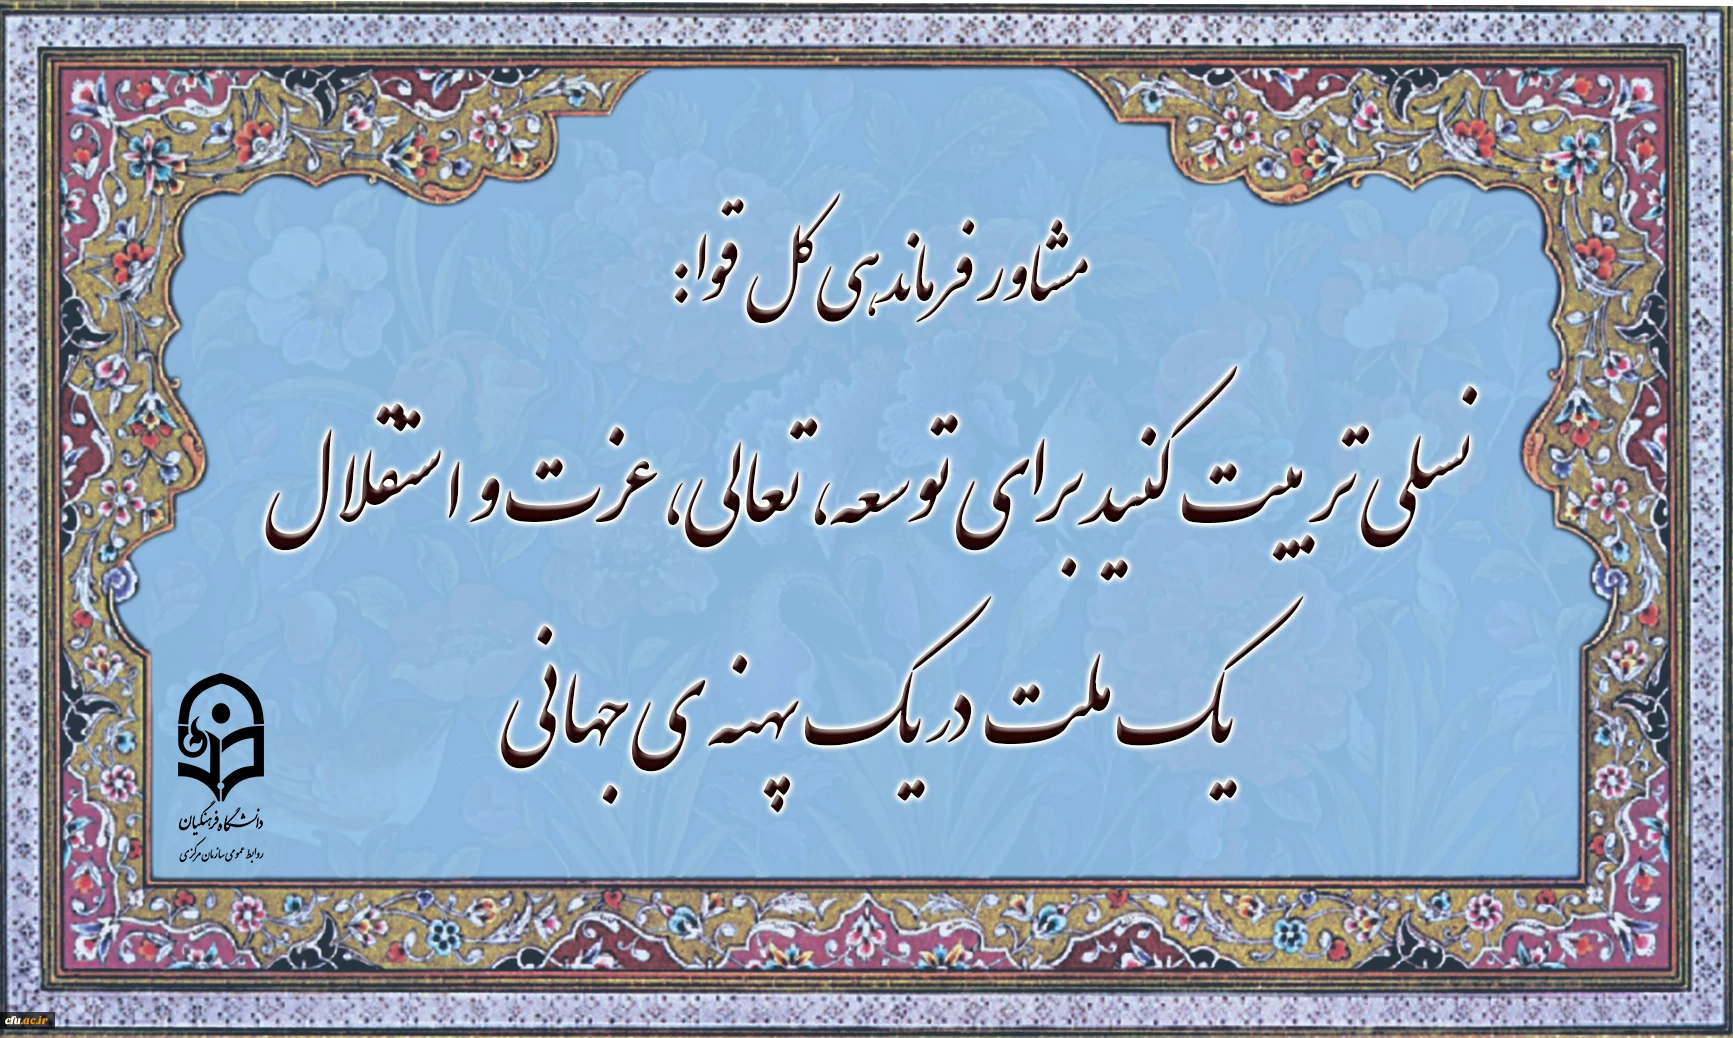 مشاور فرماندهی کل قوا:
نسلی تربیت کنید برای توسعه، تعالی، عزت و استقلال
یک ملت در یک پهنه ی جهانی
دانشگاه فرهنگیان
روابط عمومی سازمان مرکزی
cfu.ac.ir